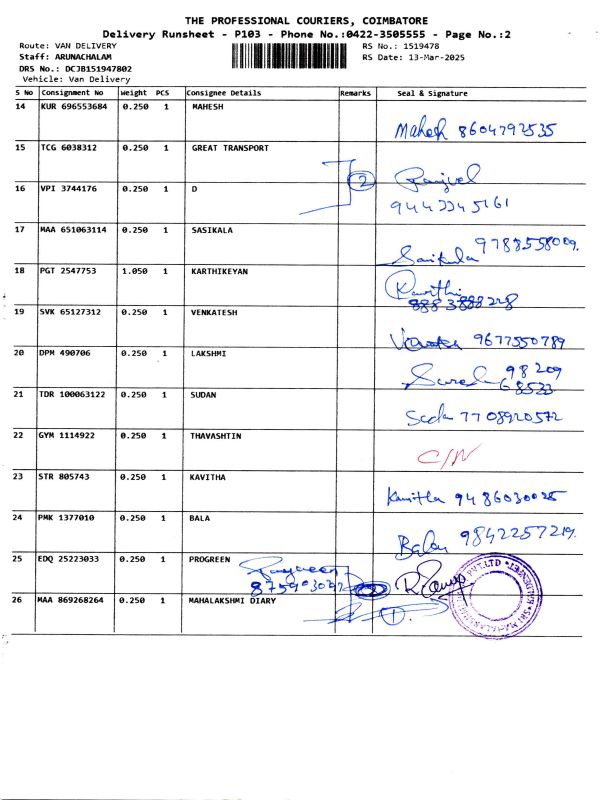 THE PROFESSIONAL COURIERS, COIMBATORE
Delivery Runsheet - P103 - Phone No.:0422-3505555 - Page No.:2
Route: VAN DELIVERY RS No.: 1519478
Staff: ARUNACHALAM RS Date: 13-Mar-2025
DRS No.: DCJB151947802
Vehicle: Van Delivery
S No Consignment No Weight PCS Consignee Details Remarks Seal & Signature
14 KUR 696553684 0.250 1 MAHESH
Mahesh 8604792535
15 TCG 6038312 0.250 1 GREAT TRANSPORT
2
16 VPI 3744176 0.250 1 D
17 MAA 651063114 0.250 1 SASIKALA
Sasikala 9788558009.
18 PGT 2547753 1.050 1 KARTHIKEYAN
Karthi
19 SVK 65127312 0.250 1 VENKATESH
9677550789
20 DPM 490706 0.250 1 LAKSHMI
Suresh 98209
68533
21 TDR 100063122 0.250 1 SUDAN
7708920572
22 GYM 1114922 0.250 1 THAVASHTIN
C/N
23 STR 805743 0.250 1 KAVITHA
Kavitha 9486030025
24 PMK 1377010 0.250 1 BALA
Bala 9842257219.
25 EDQ 25223033 0.250 1 PROGREEN
26 MAA 869268264 0.250 1 MAHALAKSHMI DIARY
1